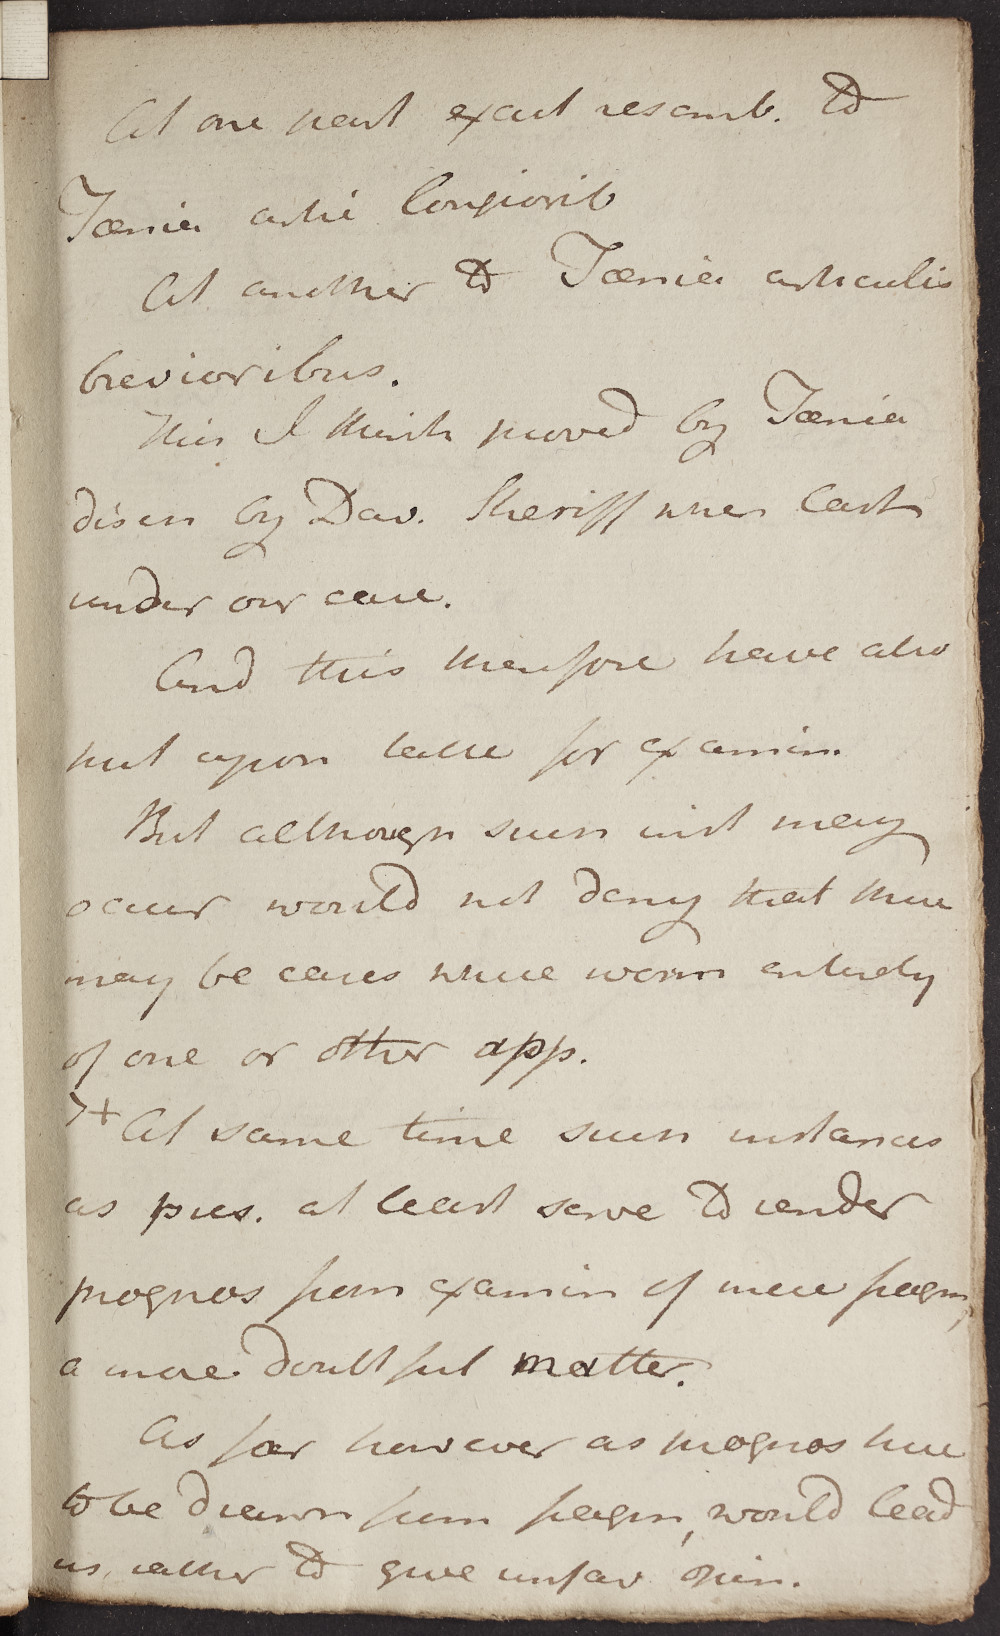 At one part exact resemb. to
Tænia arti longiorib
At another to Tænia articulis
brevioribus.
This I think proved by Tænia
disch by Dav. Sheriff when last
under our care.
And this therefore have also
put upon table for examin.
But although such inst may
occur would not deny that there
may be cases where worm entirely
of one or other app.
7+ At same time such instances
as pres. at least serve to render
prognos from examin of mere fragm,
a more doubtful matter.
As far however as prognos here
to be drawn from fragm, would lead
us rather to give unfav opin.